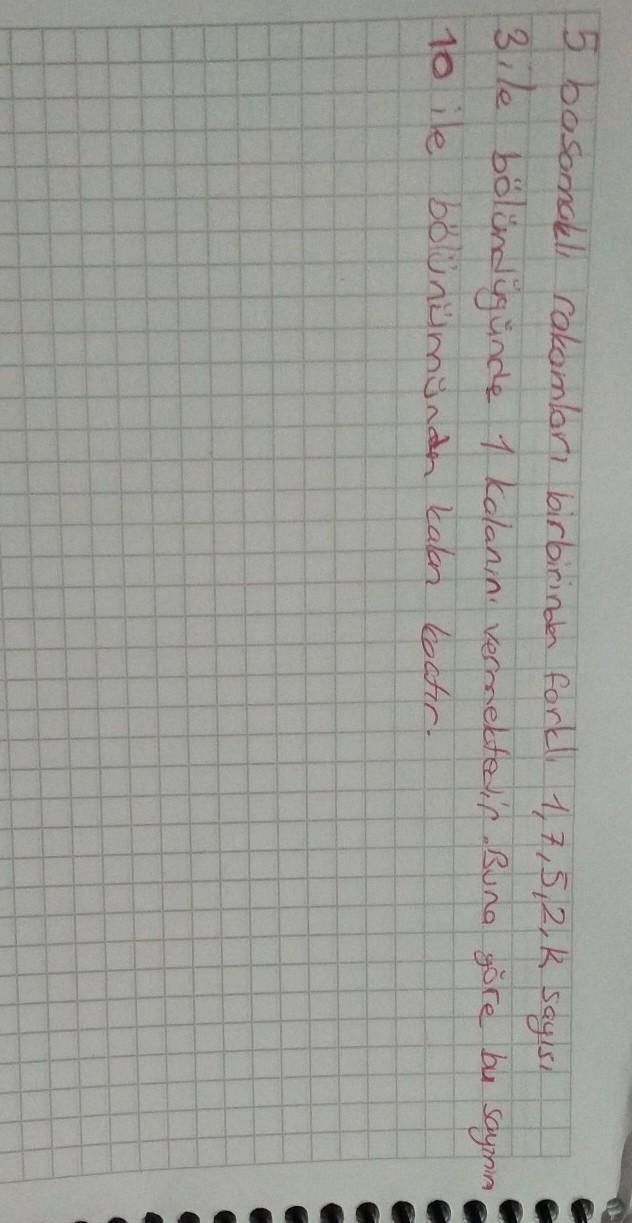 5 basamaklı rakamları birbirinden farklı 1,7,5,2,k sayısı
3 ile bölündüğünde 1 kalanını vermektedir. Buna göre bu sayının
10 ile bölünümünden kalan kaçtır.